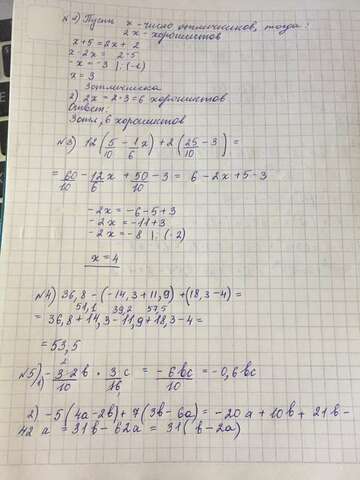 №2) Пусть x - число отличников, тогда:
2x - хорошистов
x + 5 = 2x + 2
x - 2x = 2 - 5
-x = -3 | : (-1)
x = 3
3 отличника
2) 2x = 2 · 3 = 6 хорошистов.
Ответ:
3 отл, 6 хорошистов
№3) 12(5/10 - 1/6 x) + 2(25/10 - 3) =
= 60/10 - 12x/6 + 50/10 - 3 = 6 - 2x + 5 - 3
-2x = -6 - 5 + 3
-2x = -11 + 3
-2x = -8 | : (-2)
x = 4
№4) 36,8 - (-14,3 + 11,9) + (18,3 - 4) =
51,1 39,2 57,5
= 36,8 + 14,3 - 11,9 + 18,3 - 4 =
= 53,5
№5) 1) -3·2b/10 · 3c/1 = -6bc/10 = -0,6bc
2) -5(4a - 2b) + 7(3b - 6a) = -20a + 10b + 21b -
42a = 31b - 62a = 31(b - 2a)